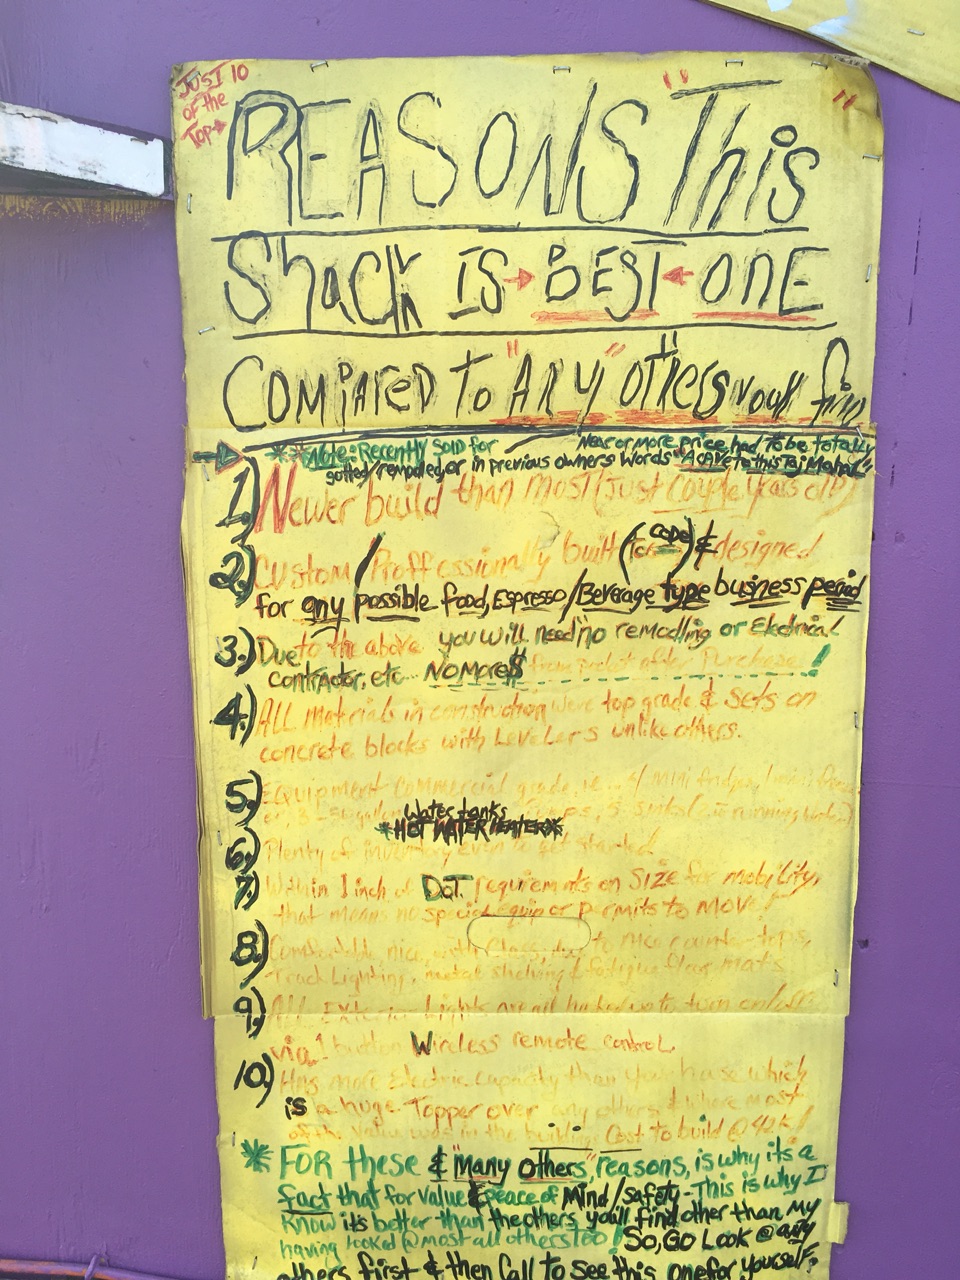 JUST 10
of the
Top→
REASONS "This"
Shack IS → BEST ← ONE
COMPARED To "ANY" others you'll find
** Note: Recently Sold for Near or more price had To be totally
gutted/remodled, or in previous owners words "A CAVE to this Taj Mahal"
1.) Newer build than most (Just couple years old)
2.) Custom/Proffessionally built (To CODE) & designed
for any possible food, Espresso/Beverage type business period
3.) Due to the above you will need no remodling or Electrical
contractor, etc... NO More $ from pocket after Purchase!
4.) ALL materials in construction were top grade & Sets on
concrete blocks with LeveLers unlike others.
5.) Equipment Commercial grade, i.e... 4 MINI fridges,
er, 3- 5 Sinks
Water tanks
*HOT WATER HEATER*
6.) Plenty of inventory even to get started!
7.) Within 1 inch of D.O.T. requirements on SIZE for mobility,
that means no special equip or permits to MOVE!
8.) Comfortable, nice, with to nice counter-tops,
Track Lighting, metal shelving & fatigue floor mats
9.) ALL EXTerior Lights are all hooked up to turn on/off
via 1 button Wireless remote control.
10.) Has more Electric Capacity than your house which
is a huge Topper over any others & where most
of the Value was in the building. Cost to build @ 42K!
* FOR these & "many others", reasons, is why its a
fact that for value & peace of Mind/safety - This is why I
Know it's better than the others you'll find other than My
having looked @ most all others too! So, GO LOOK @ any
others first & then Call to See this one for yourself.